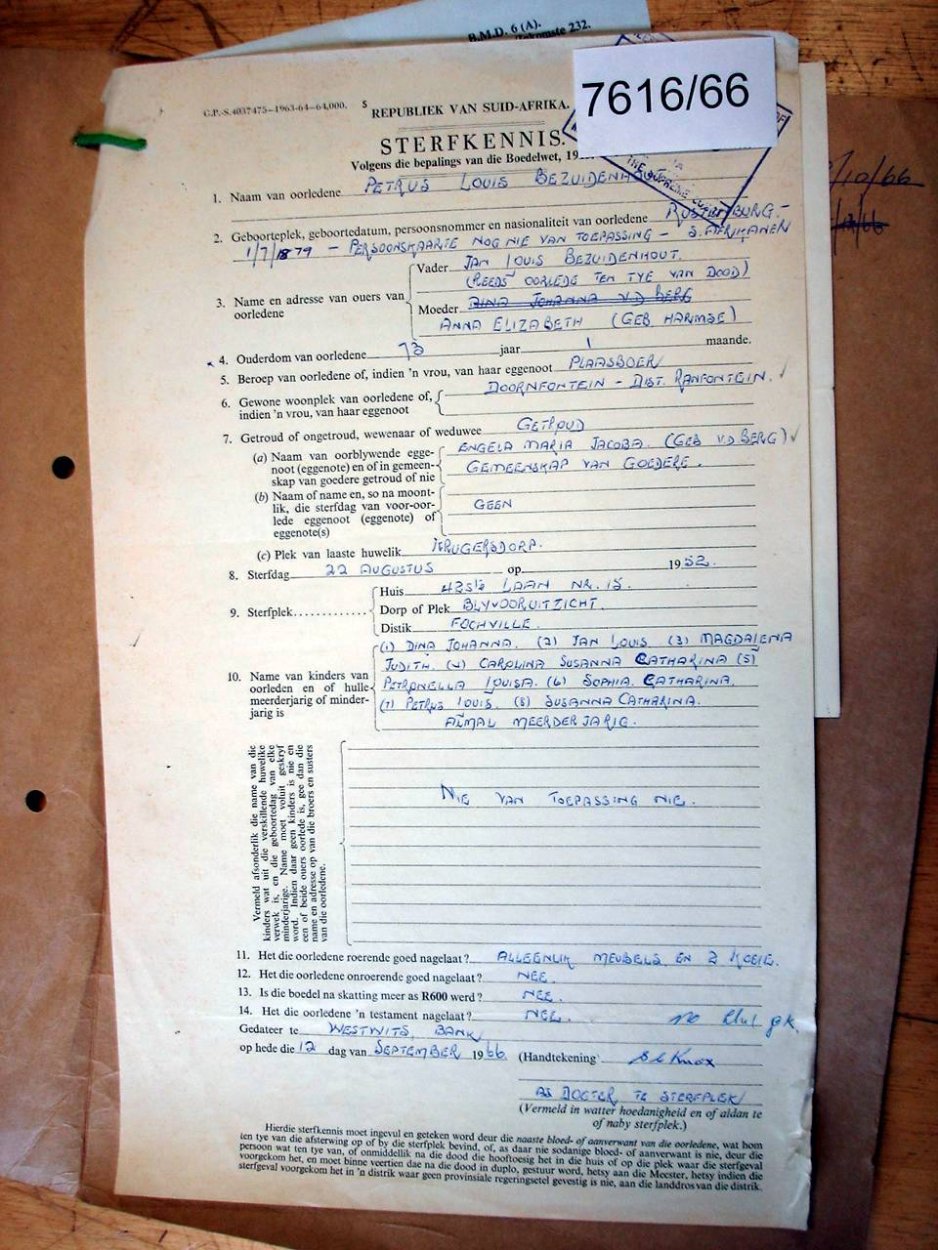 B.M.D. 6 (A).
232.
7616/66
G.P.-S.4037475—1963-64—64,000. S
REPUBLIEK VAN SUID-AFRIKA.
STERFKENNIS
Volgens die bepalings van die Boedelwet, 19
THE SUPREME COURT
/10/66
1. Naam van oorledene PETRUS LOUIS BEZUIDENHOUT
2. Geboorteplek, geboortedatum, persoonsnommer en nasionaliteit van oorledene RUSTENBURG.-
1/7/1879 - PERSOONSKAARTE NOG NIE VAN TOEPASSING - S. AFRIKANEN
3. Name en adresse van ouers van oorledene
Vader JAN LOUIS BEZUIDENHOUT.
(REEDS OORLEDE TEN TYE VAN DOOD)
Moeder DINA JOHANNA V.D BERG
ANNA ELIZABETH (GEB HARMSE)
4. Ouderdom van oorledene 73 jaar 1 maande.
5. Beroep van oorledene of, indien 'n vrou, van haar eggenoot PLAASBOER
6. Gewone woonplek van oorledene of,
indien 'n vrou, van haar eggenoot
DOORNFONTEIN - DIST. RANFONTEIN.
7. Getroud of ongetroud, wewenaar of weduwee GETROUD
(a) Naam van oorblywende egge-
noot (eggenote) en of in gemeen-
skap van goedere getroud of nie
ENGELA MARIA JACOBA. (GEB V.D BERG)
GEMEENSKAP VAN GOEDERE.
(b) Naam of name en, so na moont-
lik, die sterfdag van voor-oor-
lede eggenoot (eggenote) of
eggenote(s)
GEEN
(c) Plek van laaste huwelik KRUGERSDORP.
8. Sterfdag 22 AUGUSTUS op 1952.
9. Sterfplek
Huis LAAN NR. 15.
Dorp of Plek BLYVOORUITZICHT.
Distik FOCHVILLE.
10. Name van kinders van
oorleden en of hulle
meerderjarig of minder-
jarig is
(1) DINA JOHANNA. (2) JAN LOUIS (3) MAGDALENA
JUDITH. (4) CAROLINA SUSANNA CATHARINA (5)
PETRONELLA LOUISA. (6) SOPHIA CATHARINA.
(7) PETRUS LOUIS. (8) SUSANNA CATHARINA.
ALMAL MEERDERJARIG.
Vermeld afsonderlik die name van die
kinders wat uit die verskillende huwelike
verwek is, en die geboortedag van elke
minderjarige. Name moet voluit geskryf
word. Indien daar geen kinders is nie en
een of beide ouers oorlede is, gee dan die
name en adresse op van die broers en susters
van die oorledene.
NIE VAN TOEPASSING NIE.
11. Het die oorledene roerende goed nagelaat? ALLEENLIK MEUBELS EN 2 KOEIE.
12. Het die oorledene onroerende goed nagelaat? NEE.
13. Is die boedel na skatting meer as R600 werd? NEE.
14. Het die oorledene 'n testament nagelaat? NEE.
Gedateer te WESTWITS, BANK
op hede die 12 dag van SEPTEMBER 1966. (Handtekening
AS DOGTER TE STERFPLEK
(Vermeld in watter hoedanigheid en of aldan te
of naby sterfplek.)
Hierdie sterfkennis moet ingevul en geteken word deur die naaste bloed- of aanverwant van die oorledene, wat hom
ten tye van die afsterwing op of by die sterfplek bevind, of, as daar nie sodanige bloed- of aanverwant is nie, deur die
persoon wat ten tye van, of onmiddellik na die dood die hooftoesig het in die huis of op die plek waar die sterfgeval
voorgekom het, en moet binne veertien dae na die dood in duplo, gestuur word, hetsy aan die Meester, hetsy indien die
sterfgeval voorgekom het in 'n distrik waar geen provinsiale regeringsetel gevestig is nie, aan die landdros van die distrik.